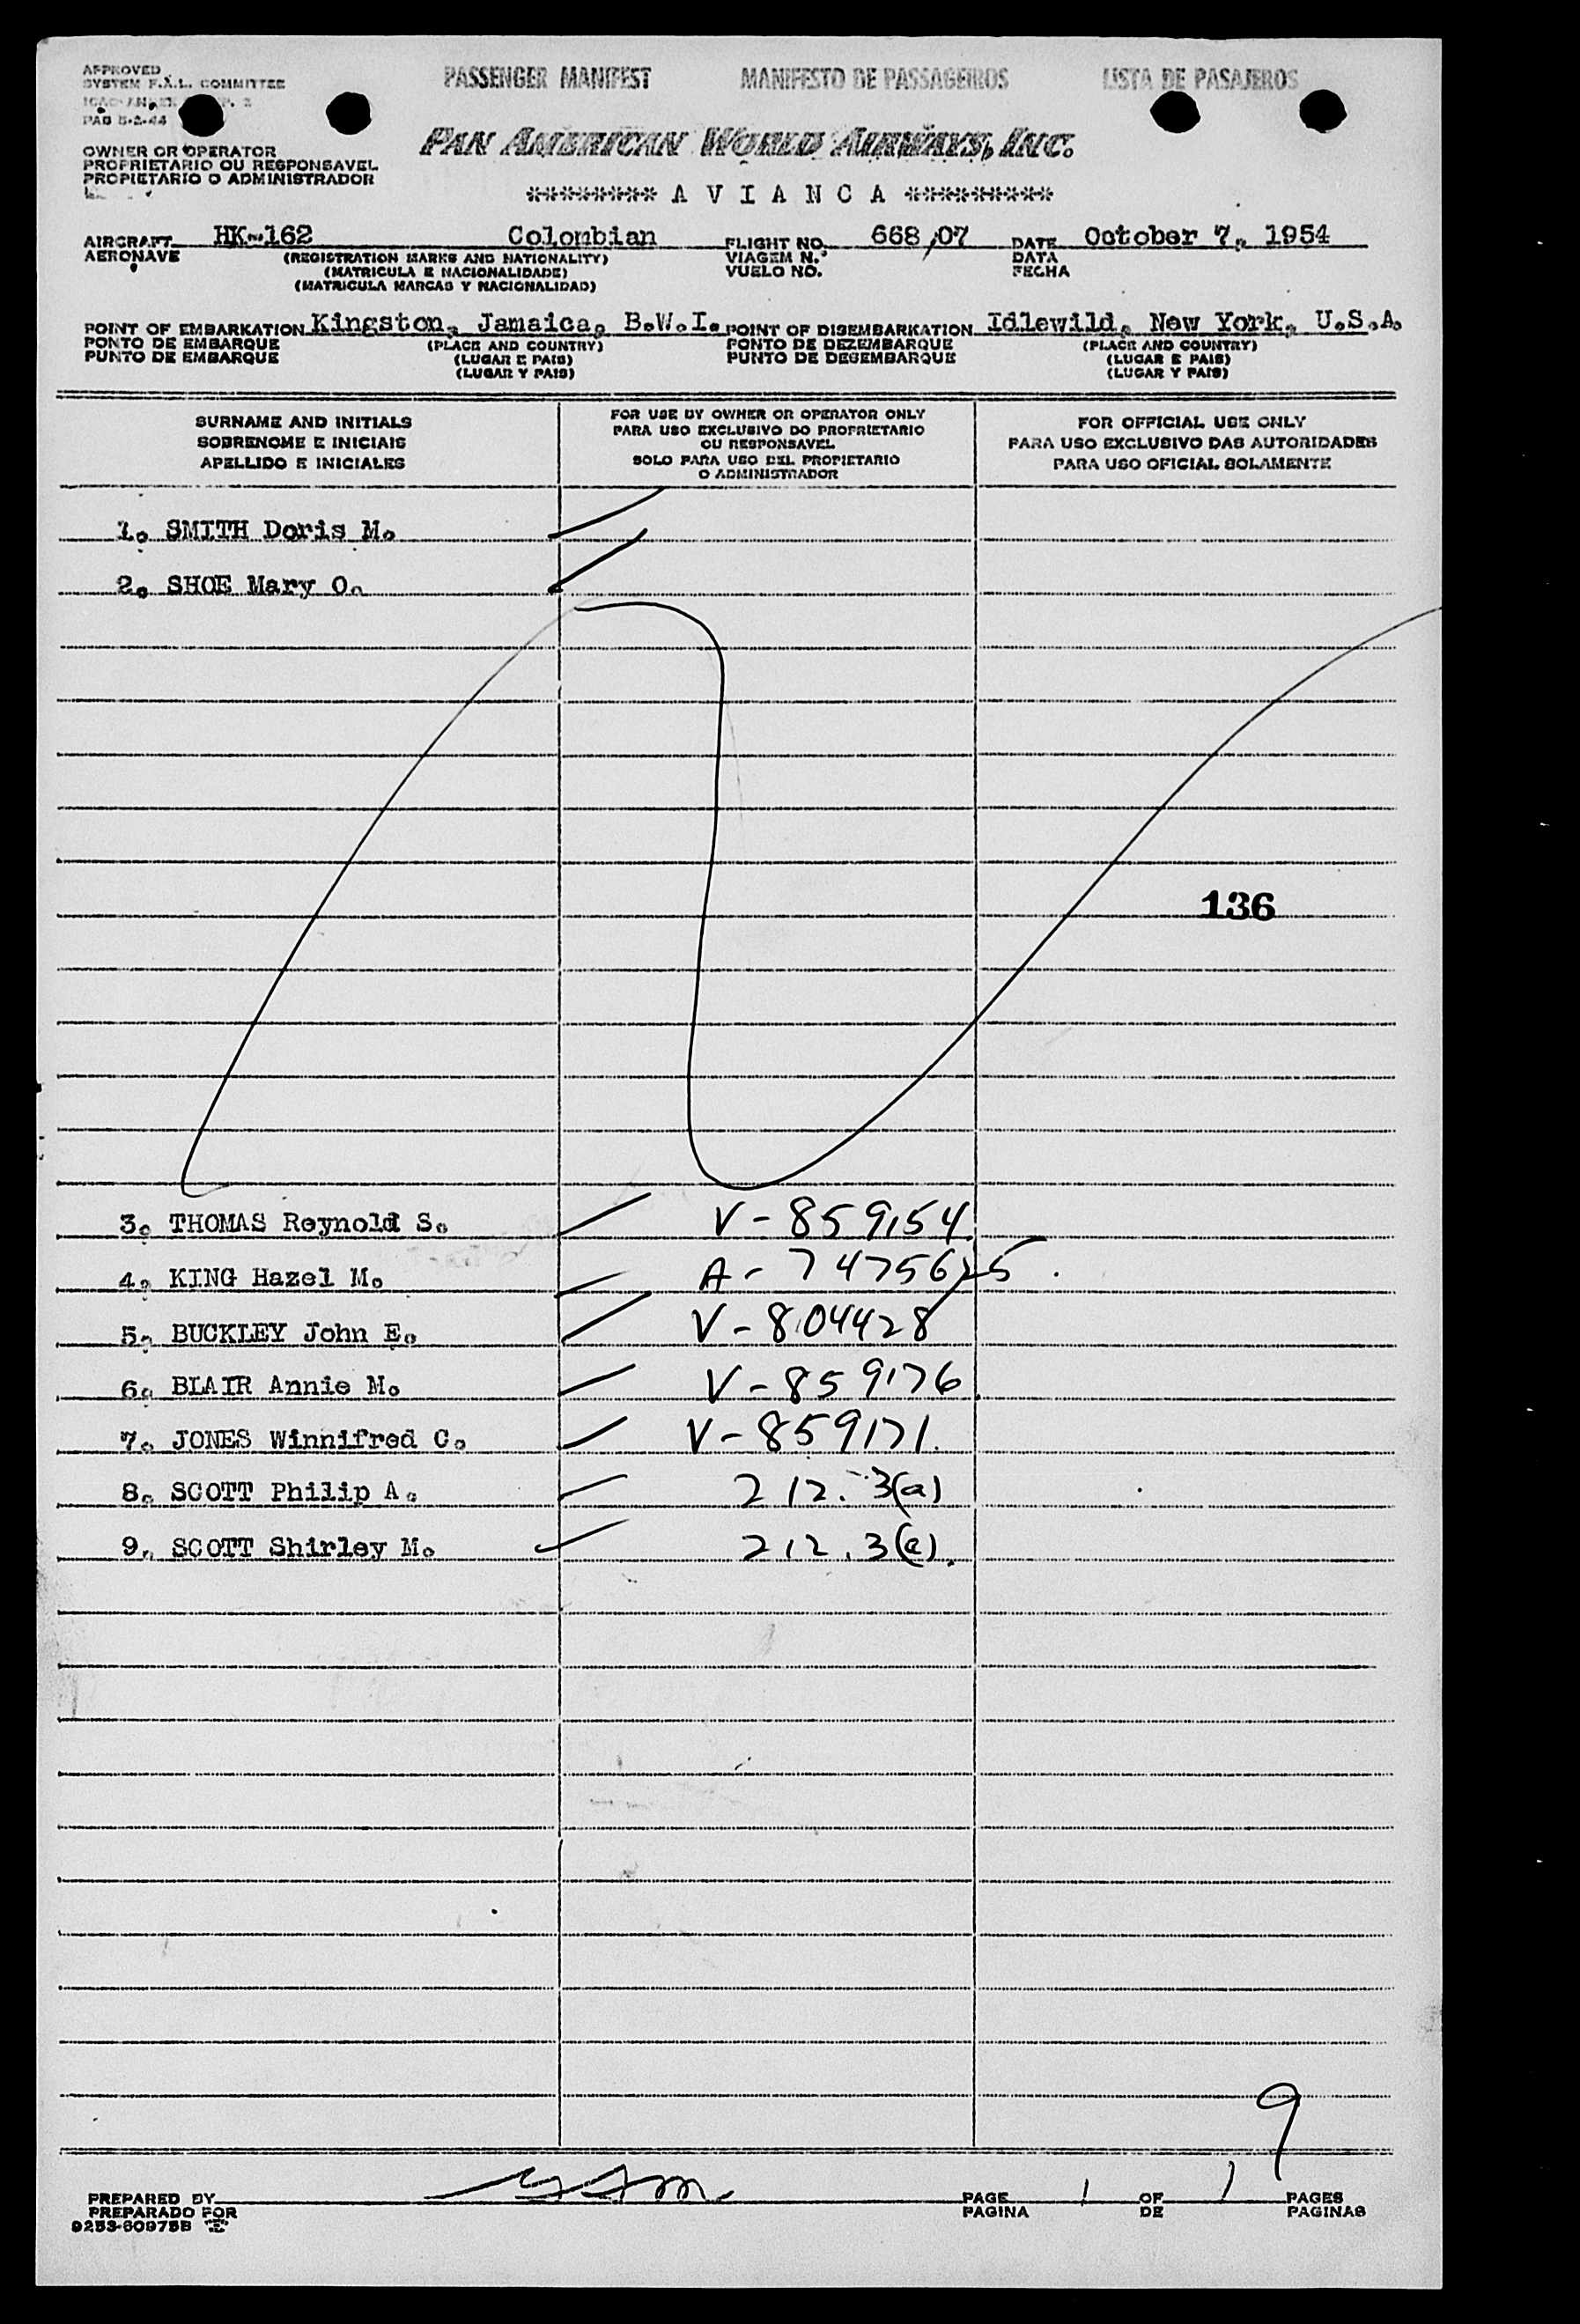 APPROVED
SYSTEM F.A.L. COMMITTEE
PAB 5-2-44
PASSENGER MANIFEST MANIFESTO DE PASSAGEIROS LISTA DE PASAJEROS
PAN AMERICAN WORLD AIRWAYS, INC.
OWNER OR OPERATOR
PROPRIETARIO OU RESPONSAVEL
PROPIETARIO O ADMINISTRADOR
******** A V I A N C A *********
AIRCRAFT HK-162 Colombian FLIGHT NO. 668/07 DATE October 7, 1954
AERONAVE (REGISTRATION MARKS AND NATIONALITY) VIAGEM N.º DATA
(MATRICULA E NACIONALIDADE) VUELO NO. FECHA
(MATRICULA MARCAS Y NACIONALIDAD)
POINT OF EMBARKATION Kingston, Jamaica, B.W.I. POINT OF DISEMBARKATION Idlewild, New York, U.S.A.
PONTO DE EMBARQUE (PLACE AND COUNTRY) PONTO DE DEZEMBARQUE (PLACE AND COUNTRY)
PUNTO DE EMBARQUE (LUGAR E PAIS) PUNTO DE DESEMBARQUE (LUGAR E PAIS)
(LUGAR Y PAIS) (LUGAR Y PAIS)
SURNAME AND INITIALS
SOBRENOME E INICIAIS
APELLIDO E INICIALES
FOR USE BY OWNER OR OPERATOR ONLY
PARA USO EXCLUSIVO DO PROPRIETARIO
OU RESPONSAVEL
SOLO PARA USO DEL PROPIETARIO
O ADMINISTRADOR
FOR OFFICIAL USE ONLY
PARA USO EXCLUSIVO DAS AUTORIDADES
PARA USO OFICIAL SOLAMENTE
1. SMITH Doris M.
2. SHOE Mary O.
136
3. THOMAS Reynold S. V-859154
4. KING Hazel M. A-7475625
5. BUCKLEY John E. V-804428
6. BLAIR Annie M. V-859176
7. JONES Winnifred C. V-859171
8. SCOTT Philip A. 212.3(a)
9. SCOTT Shirley M. 212.3(a)
9
PREPARED BY PAGE 1 OF 1 PAGES
PREPARADO POR PAGINA DE PAGINAS
9253-60975B